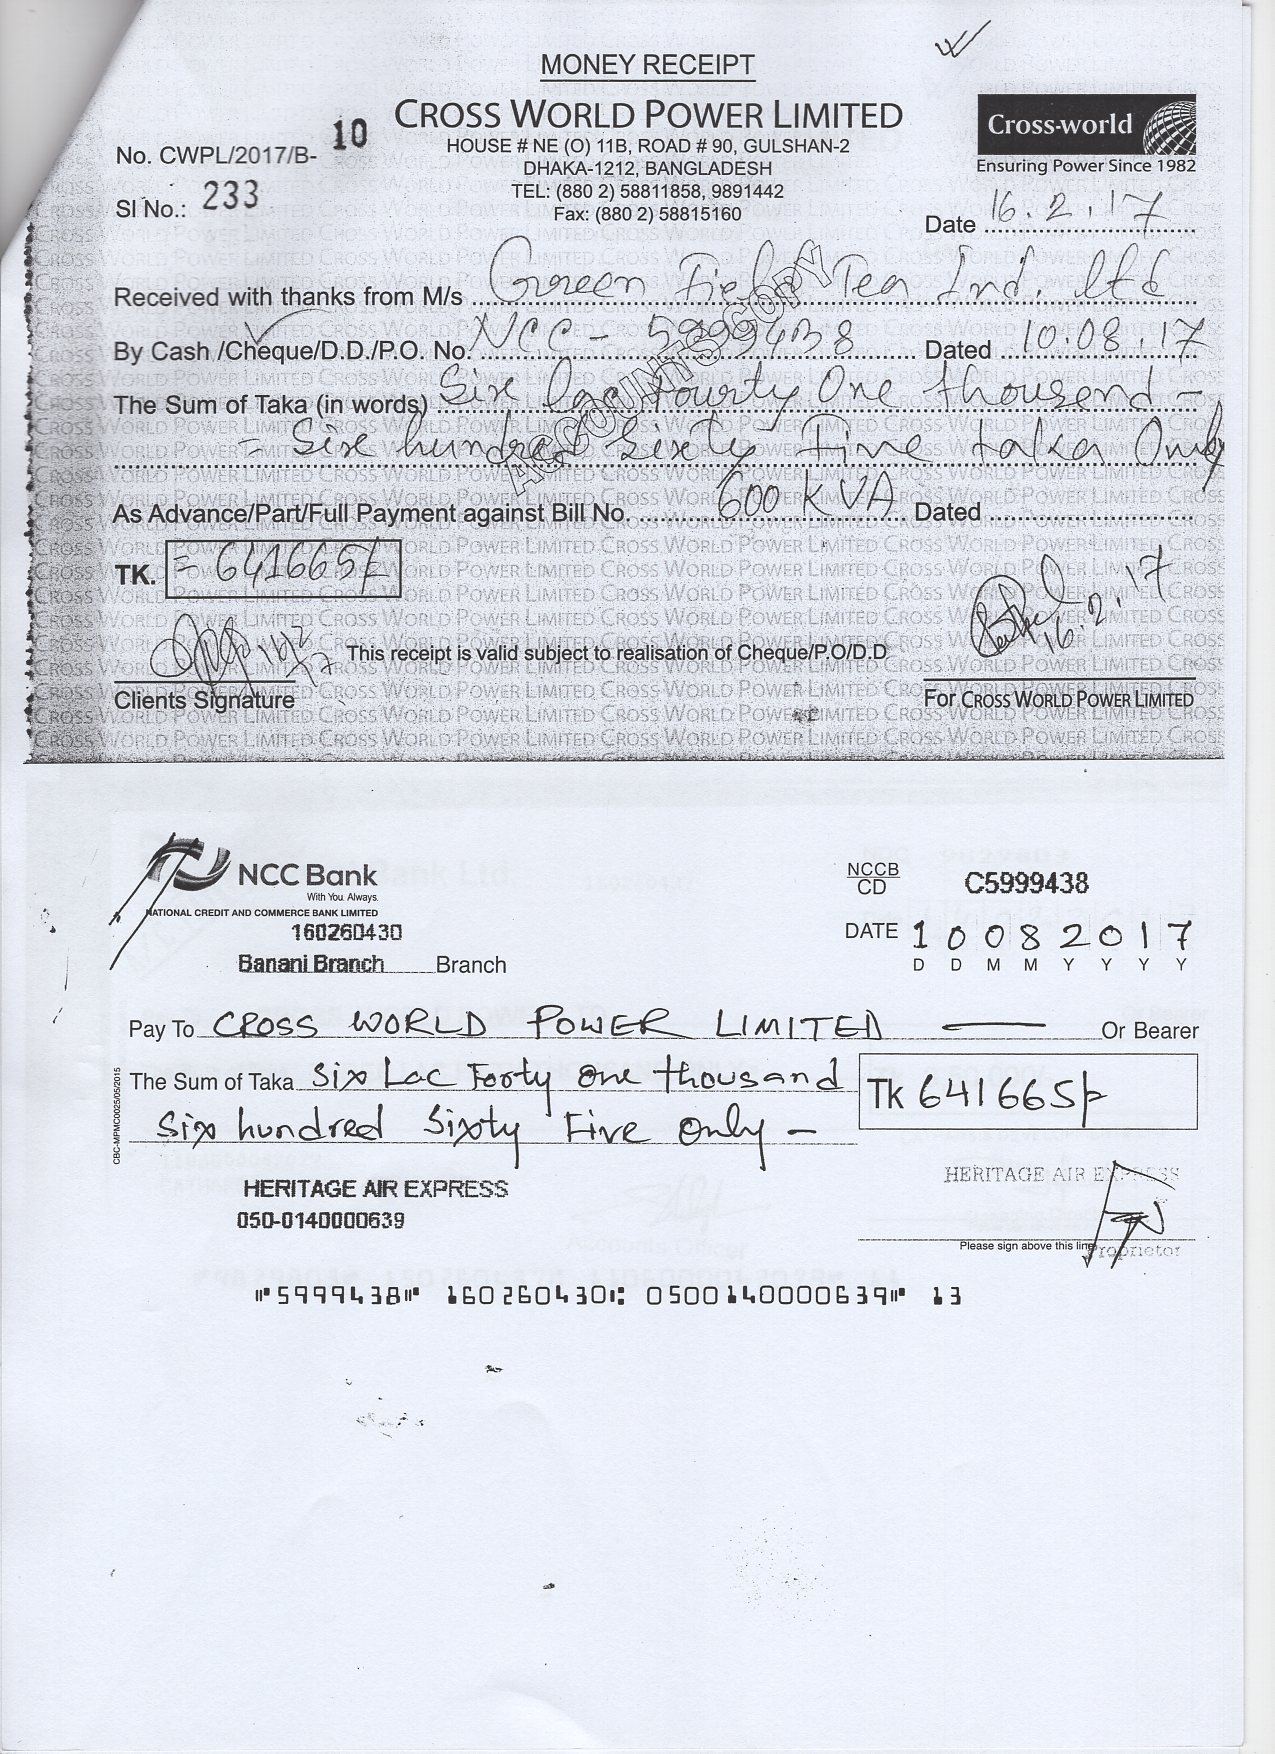 MONEY RECEIPT
CROSS WORLD POWER LIMITED
HOUSE # NE (O) 11B, ROAD # 90, GULSHAN-2
DHAKA-1212, BANGLADESH
TEL: (880 2) 58811858, 9891442
Fax: (880 2) 58815160
Cross-world
Ensuring Power Since 1982
No. CWPL/2017/B- 10
Sl No.: 233
Date 16.2.17
Received with thanks from M/s Green Field Tea Ind. ltd
By Cash /Cheque/D.D./P.O. No. NCC - 5999438 Dated 10.08.17
The Sum of Taka (in words) Six Lac Fourty One thousend -
- Six hundred Sixty Five taka Only
ACCOUNTS COPY
As Advance/Part/Full Payment against Bill No. 600 KVA Dated
TK. = 641665/
16.2.17
This receipt is valid subject to realisation of Cheque/P.O/D.D
Clients Signature
For CROSS WORLD POWER LIMITED
NCC Bank
With You. Always.
NATIONAL CREDIT AND COMMERCE BANK LIMITED
160260430
Banani Branch Branch
NCCB
CD
C5999438
DATE 10082017
D D M M Y Y Y Y
Pay To CROSS WORLD POWER LIMITED Or Bearer
The Sum of Taka Six Lac Forty One thousand
Six hundred Sixty Five Only -
Tk 641665/-
CBC-MPMC0025/05/2015
HERITAGE AIR EXPRESS
050-0140000639
HERITAGE AIR EXPRESS
Please sign above this line
Proprietor
⑈5999438⑈ 160260430⑆ 0500140000639⑈ 13